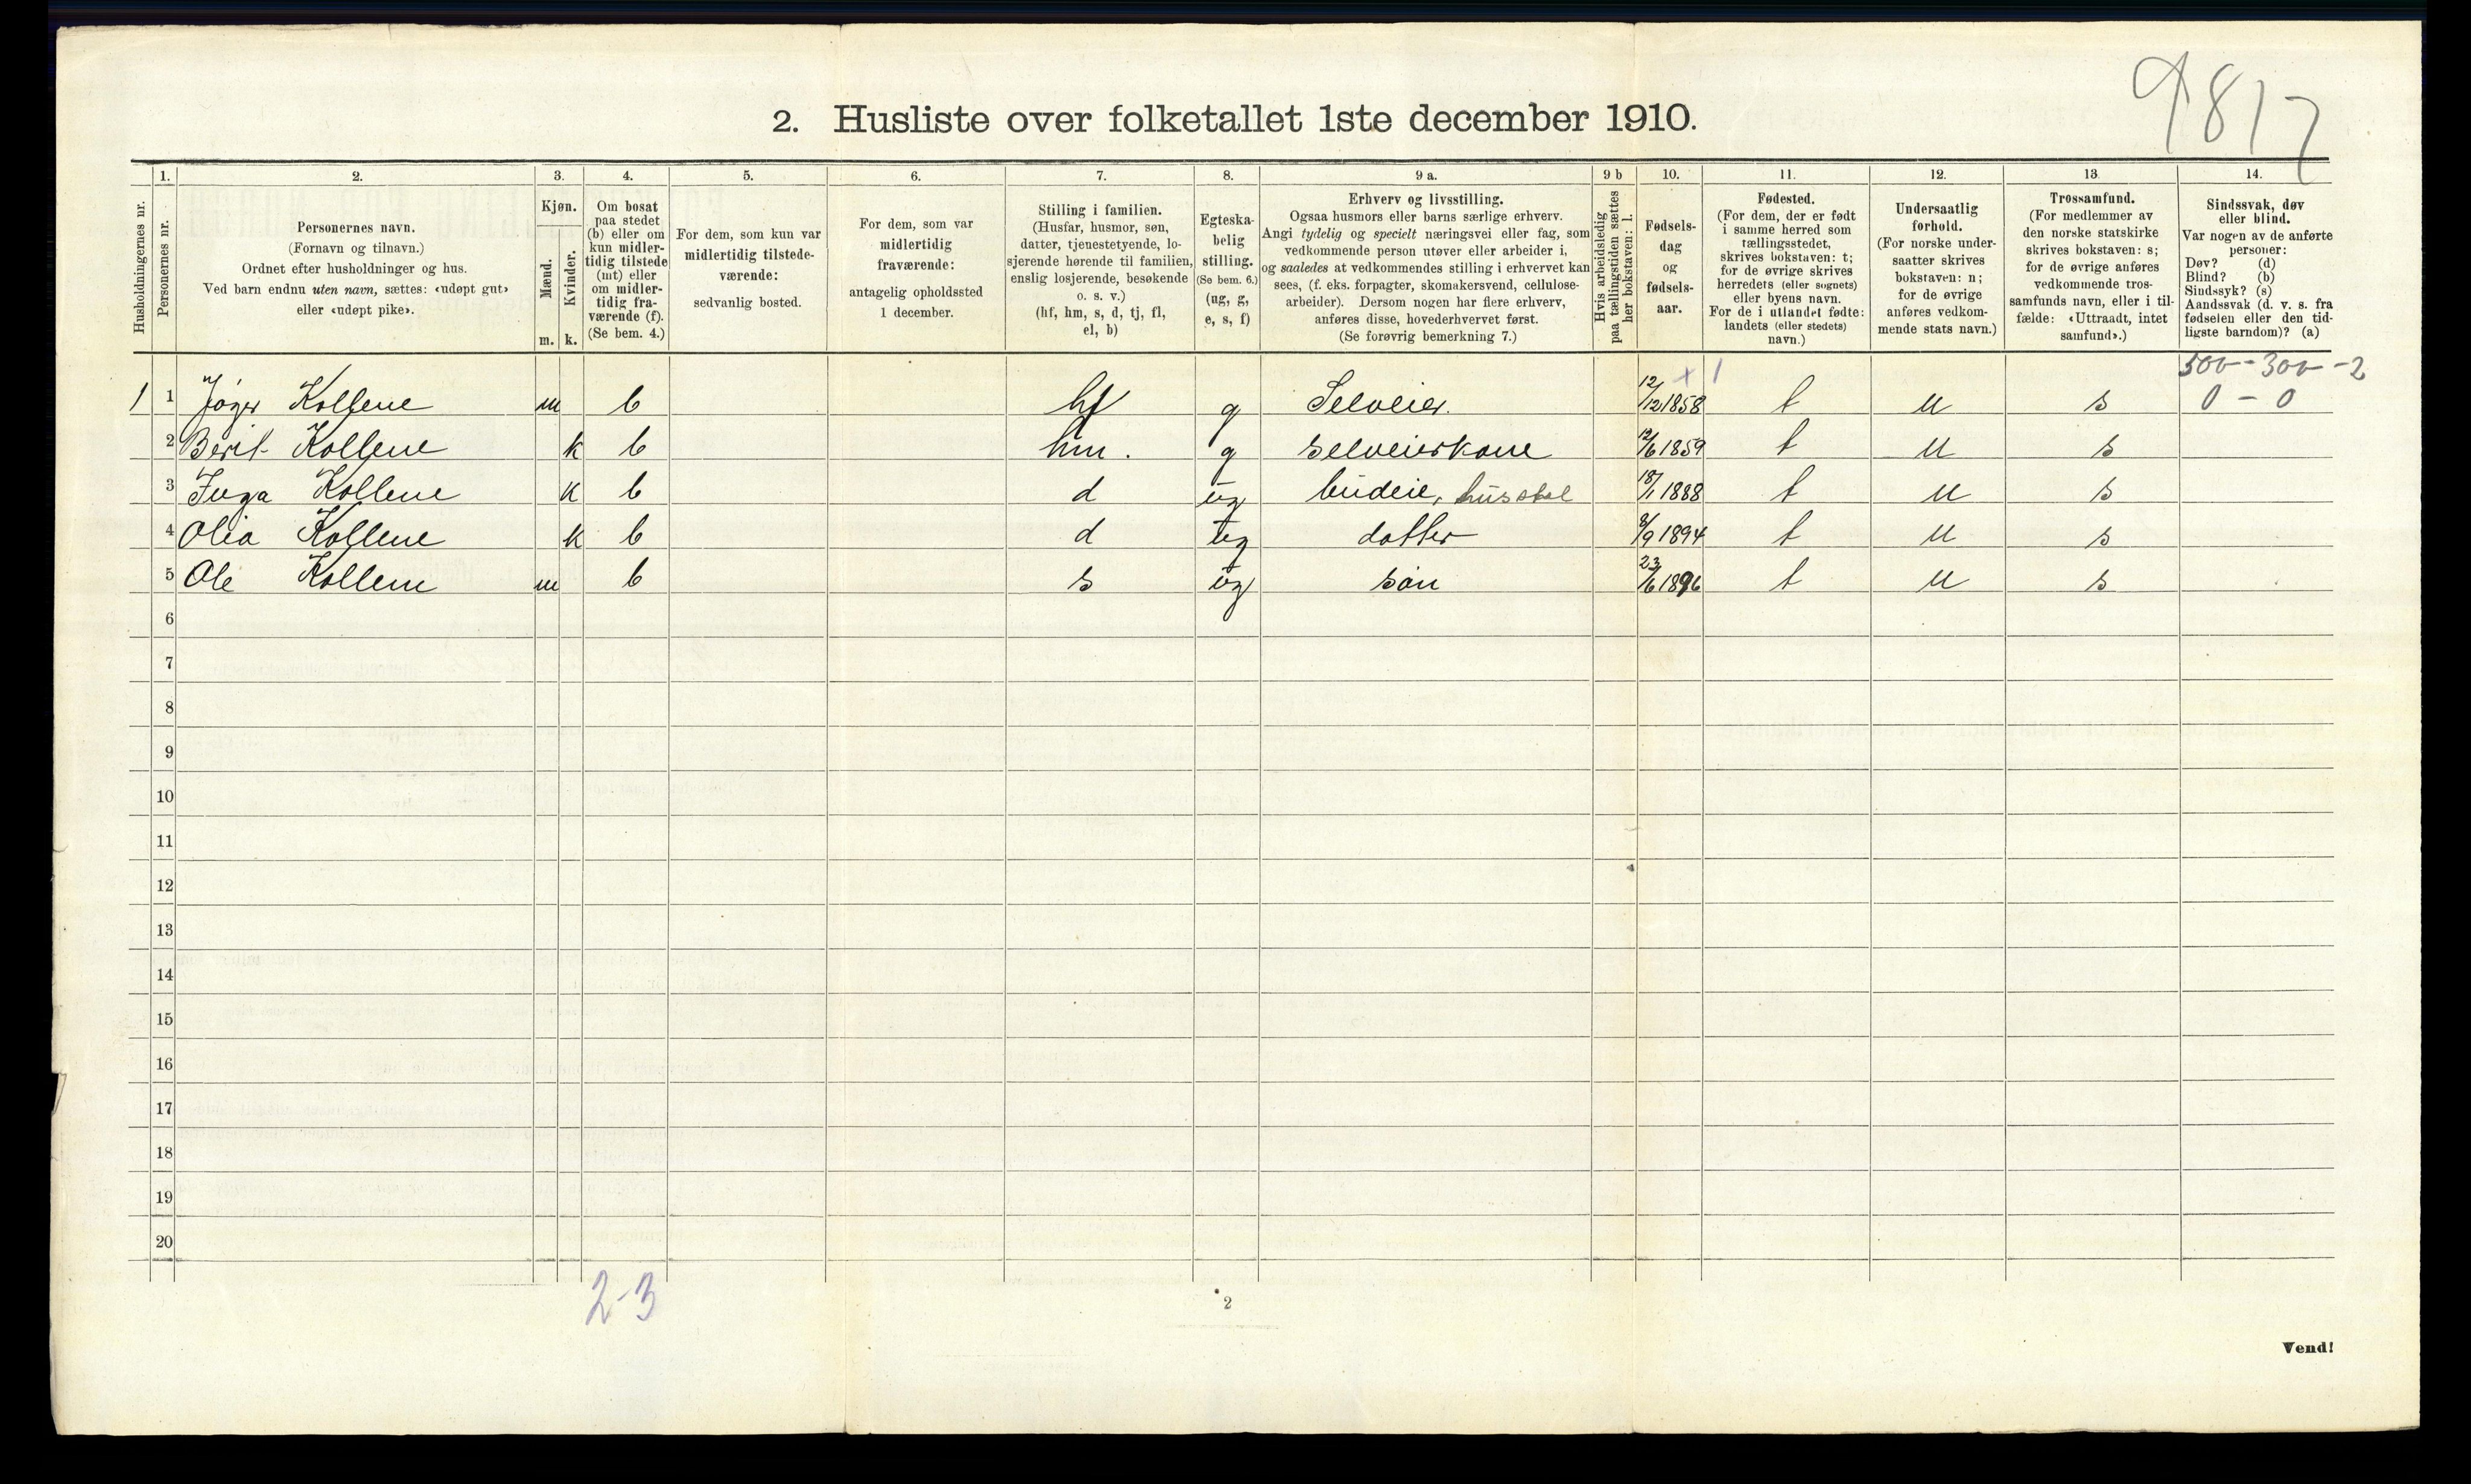 9817
2. Husliste over folketallet 1ste december 1910.
Husholdningernes nr.
1.
Personernes nr.
2.
Personernes navn.
(Fornavn og tilnavn.)
Ordnet efter husholdninger og hus.
Ved barn endnu uten navn, sættes: «udøpt gut»
eller «udøpt pike».
3.
Kjøn.
Mænd.
Kvinder.
m. k.
4.
Om bosat
paa stedet
(b) eller om
kun midler-
tidig tilstede
(mt) eller
om midler-
tidig fra-
værende (f).
(Se bem. 4.)
5.
For dem, som kun var
midlertidig tilstede-
værende:
sedvanlig bosted.
6.
For dem, som var
midlertidig
fraværende:
antagelig opholdssted
1 december.
7.
Stilling i familien.
(Husfar, husmor, søn,
datter, tjenestetyende, lo-
sjerende hørende til familien,
enslig losjerende, besøkende
o. s. v.)
(hf, hm, s, d, tj, fl,
el, b)
8.
Egteska-
belig
stilling.
(Se bem. 6.)
(ug, g,
e, s, f)
9 a.
Erhverv og livsstilling.
Ogsaa husmors eller barns særlige erhverv.
Angi tydelig og specielt næringsvei eller fag, som
vedkommende person utøver eller arbeider i,
og saaledes at vedkommendes stilling i erhvervet kan
sees, (f. eks. forpagter, skomakersvend, cellulose-
arbeider). Dersom nogen har flere erhverv,
anføres disse, hovederhvervet først.
(Se forøvrig bemerkning 7.)
9 b
Hvis arbeidsledig
paa tællingstiden sættes
her bokstaven: l.
10.
Fødsels-
dag
og
fødsels-
aar.
11.
Fødested.
(For dem, der er født
i samme herred som
tællingsstedet,
skrives bokstaven: t;
for de øvrige skrives
herredets (eller sognets)
eller byens navn.
For de i utlandet fødte:
landets (eller stedets)
navn.)
12.
Undersaatlig
forhold.
(For norske under-
saatter skrives
bokstaven: n;
for de øvrige
anføres vedkom-
mende stats navn.)
13
Trossamfund.
(For medlemmer av
den norske statskirke
skrives bokstaven: s;
for de øvrige anføres
vedkommende tros-
samfunds navn, eller i til-
fælde: «Uttraadt, intet
samfund».)
14.
Sindssvak, døv
eller blind.
Var nogen av de anførte
personer:
Døv? (d)
Blind? (b)
Sindssyk? (s)
Aandssvak (d. v. s. fra
fødselen eller den tid-
ligste barndom)? (a)
x 1 500 - 300 - 2
1 1 Kollene m b hf g Selveier. 12/12 1858 t n s 0 - 0
2 Berit Kollene k b hm. g selveierkone 12/6 1859 t n s
3 Inga Kollene k b d ug budeie, husstel 18/1 1888 t n s
4 Olia Kollene k b d ug datter 8/9 1894 t n s
5 Ole Kollene m b s ug søn 23/6 1896 t n s
6
7
8
9
10
11
12
13
14
15
16
17
18
19
20
2-3
2
Vend!